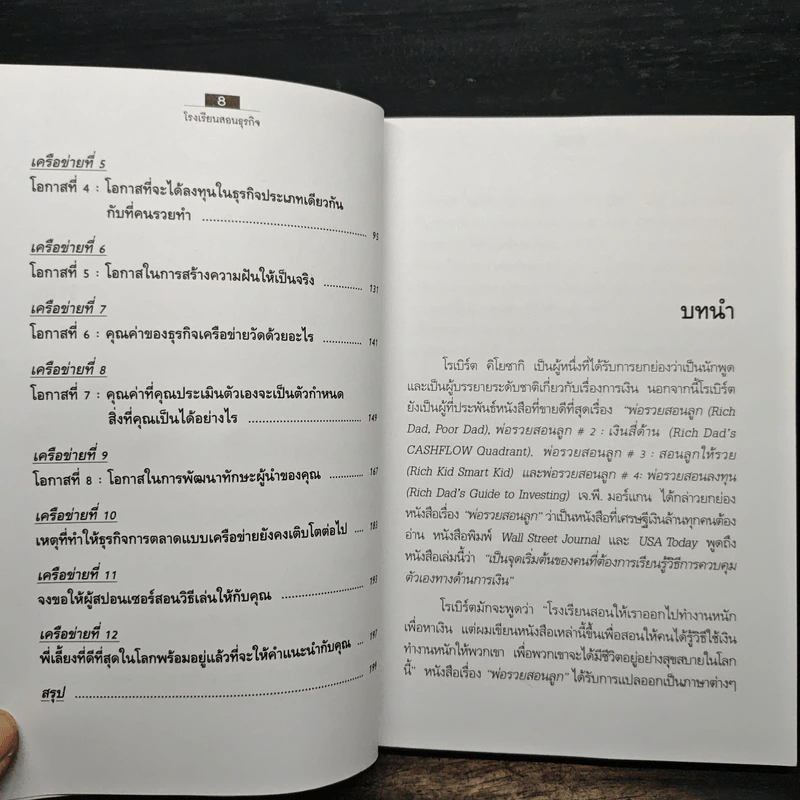 8
โรงเรียนสอนธุรกิจ
เครือข่ายที่ 5
โอกาสที่ 4 : โอกาสที่จะได้ลงทุนในธุรกิจประเภทเดียวกัน
กับที่คนรวยทำ ........................................ 95
เครือข่ายที่ 6
โอกาสที่ 5 : โอกาสในการสร้างความฝันให้เป็นจริง ............ 131
เครือข่ายที่ 7
โอกาสที่ 6 : คุณค่าของธุรกิจเครือข่ายวัดด้วยอะไร ............ 141
เครือข่ายที่ 8
โอกาสที่ 7 : คุณค่าที่คุณประเมินตัวเองจะเป็นตัวกำหนด
สิ่งที่คุณเป็นได้อย่างไร ............................ 149
เครือข่ายที่ 9
โอกาสที่ 8 : โอกาสในการพัฒนาทักษะผู้นำของคุณ ........... 167
เครือข่ายที่ 10
เหตุที่ทำให้ธุรกิจการตลาดแบบเครือข่ายยังคงเติบโตต่อไป .... 183
เครือข่ายที่ 11
จงขอให้ผู้สปอนเซอร์สอนวิธีเล่นให้กับคุณ ...................... 193
เครือข่ายที่ 12
พี่เลี้ยงที่ดีที่สุดในโลกพร้อมอยู่แล้วที่จะให้คำแนะนำกับคุณ .... 197
สรุป ........................................................................ 199
บทนำ
โรเบิร์ต คิโยซากิ เป็นผู้หนึ่งที่ได้รับการยกย่องว่าเป็นนักพูด
และเป็นผู้บรรยายระดับชาติเกี่ยวกับเรื่องการเงิน นอกจากนี้โรเบิร์ต
ยังเป็นผู้ที่ประพันธ์หนังสือที่ขายดีที่สุดเรื่อง "พ่อรวยสอนลูก (Rich
Dad, Poor Dad), พ่อรวยสอนลูก # 2 : เงินสี่ด้าน (Rich Dad's
CASHFLOW Quadrant), พ่อรวยสอนลูก # 3 : สอนลูกให้รวย
(Rich Kid Smart Kid) และพ่อรวยสอนลูก # 4: พ่อรวยสอนลงทุน
(Rich Dad's Guide to Investing) เจ.พี. มอร์แกน ได้กล่าวยกย่อง
หนังสือเรื่อง "พ่อรวยสอนลูก" ว่าเป็นหนังสือที่เศรษฐีเงินล้านทุกคนต้อง
อ่าน หนังสือพิมพ์ Wall Street Journal และ USA Today พูดถึง
หนังสือเล่มนี้ว่า "เป็นจุดเริ่มต้นของคนที่ต้องการเรียนรู้วิธีการควบคุม
ตัวเองทางด้านการเงิน"
โรเบิร์ตมักจะพูดว่า "โรงเรียนสอนให้เราออกไปทำงานหนัก
เพื่อหาเงิน แต่ผมเขียนหนังสือเหล่านี้ขึ้นเพื่อสอนให้คนได้รู้วิธีใช้เงิน
ทำงานหนักให้พวกเขา เพื่อพวกเขาจะได้มีชีวิตอยู่อย่างสุขสบายในโลก
นี้" หนังสือเรื่อง "พ่อรวยสอนลูก" ได้รับการแปลออกเป็นภาษาต่างๆ